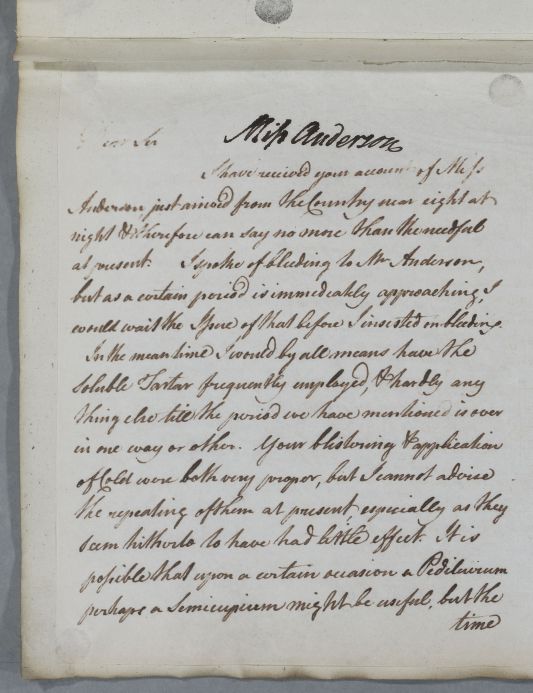 Dear Sir
Miss Anderson
I have recived your account of Miss
Anderson just arrived from the Country near eight at
night & therefore can say no more than the needful
at present. I spoke of bleeding to Mr Anderson,
but as a certain period is immediately approaching, I
would wait the Issue of that before I insisted on bleeding.
In the mean time I would by all means have the
Soluble Tartar frequently employed, & hardly any
thing else till the period we have mentioned is over
in one way or other. Your blistering & application
of Cold were both very proper, but I cannot advise
the repeating of them at present especially as they
seem hitherto to have had little effect. It is
possible that upon a certain occasion a Pediluvium
perhaps a Semicupium might be useful, but the
time